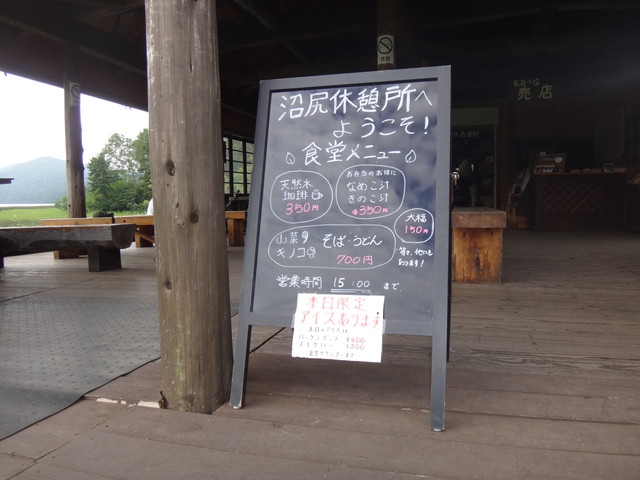 沼尻休憩所へ
ようこそ!
食堂メニュー
天然水
珈琲
350円
お弁当のお供に
なめこ汁
きのこ汁
各350円
大福
150円
山菜
キノコ
そば・うどん
700円
等々、他にも
あります!
営業時間 15:00 まで
本日限定
アイスあります
本日のアイスは
¥400
¥200
売店